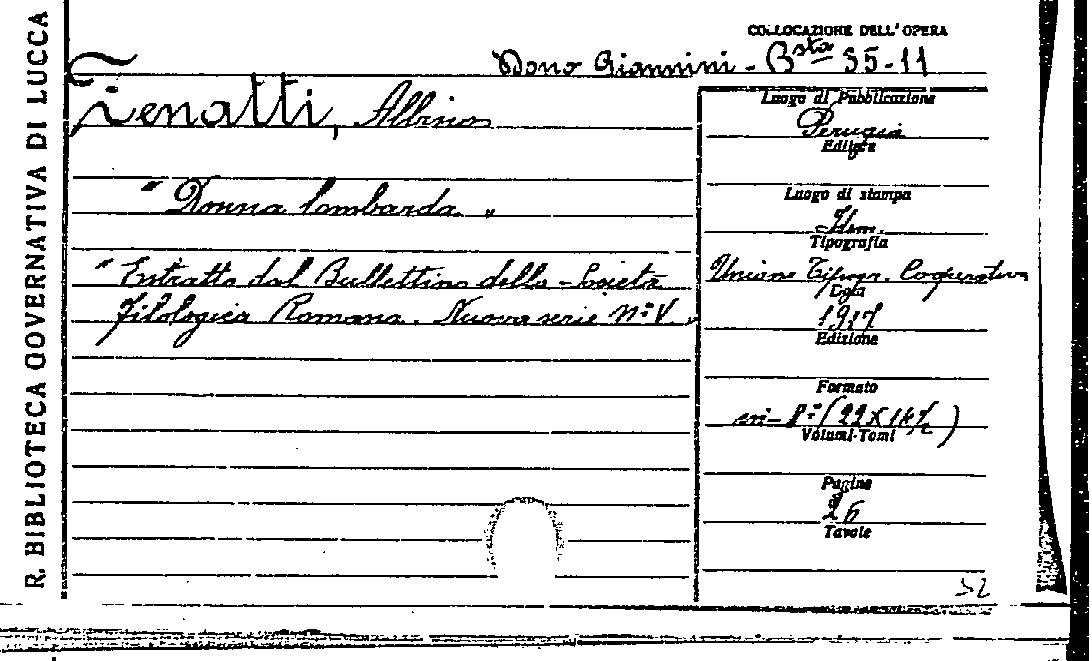 R. BIBLIOTECA GOVERNATIVA DI LUCCA
COLLOCAZIONE DELL'OPERA
Dono Giannini - Bsta 35-11
Zenatti, Albino
"Donna lombarda"
"Estratto dal Bullettino della Società
Filologica Romana. Nuova serie N° V."
Luogo di Pubblicazione
Perugia
Editore
Luogo di stampa
Idem.
Tipografia
Unione Tipogr. Cooperativa
Data
1917
Edizione
Formato
in-8° (22X14½)
Volumi-Tomi
Pagine
26
Tavole
52